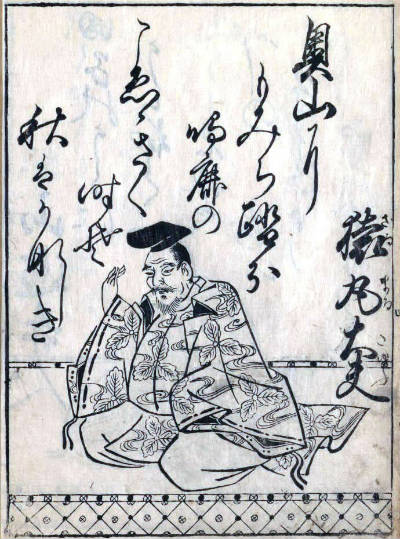 猿丸大夫
奥山に
もみち踏分
鳴鹿の
こゑきく
時そ
秋はかなしき